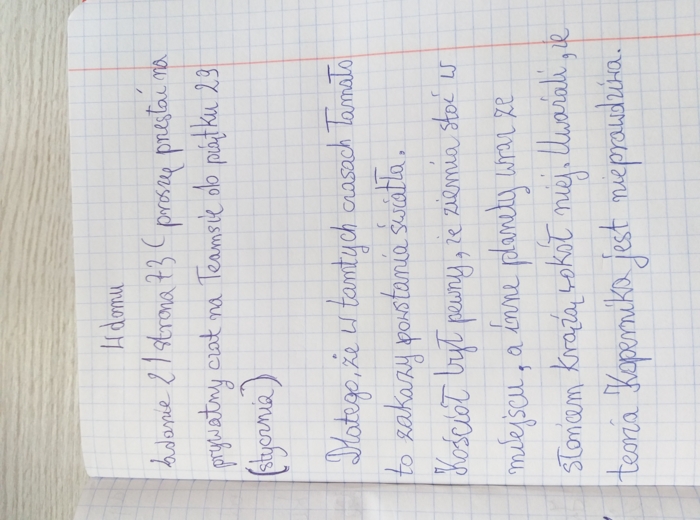 W domu
zadanie 21 strona 73 ( proszę przesłać na
prywatny czat na Teamsie do piątku 29
(stycznia)
Dlatego, że w tamtych czasach łamało
to zakazy powstania światła.
Kościół był pewny, że ziemia stoi w
miejscu, a inne planety wraz ze
słońcem krążą wokół niej. Uważali, że
teoria Kopernika jest nieprawdziwa.